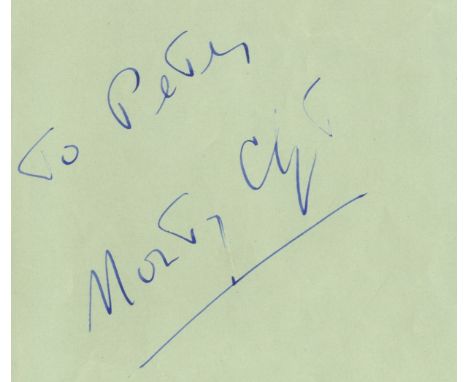 To Peter
Monty Clift